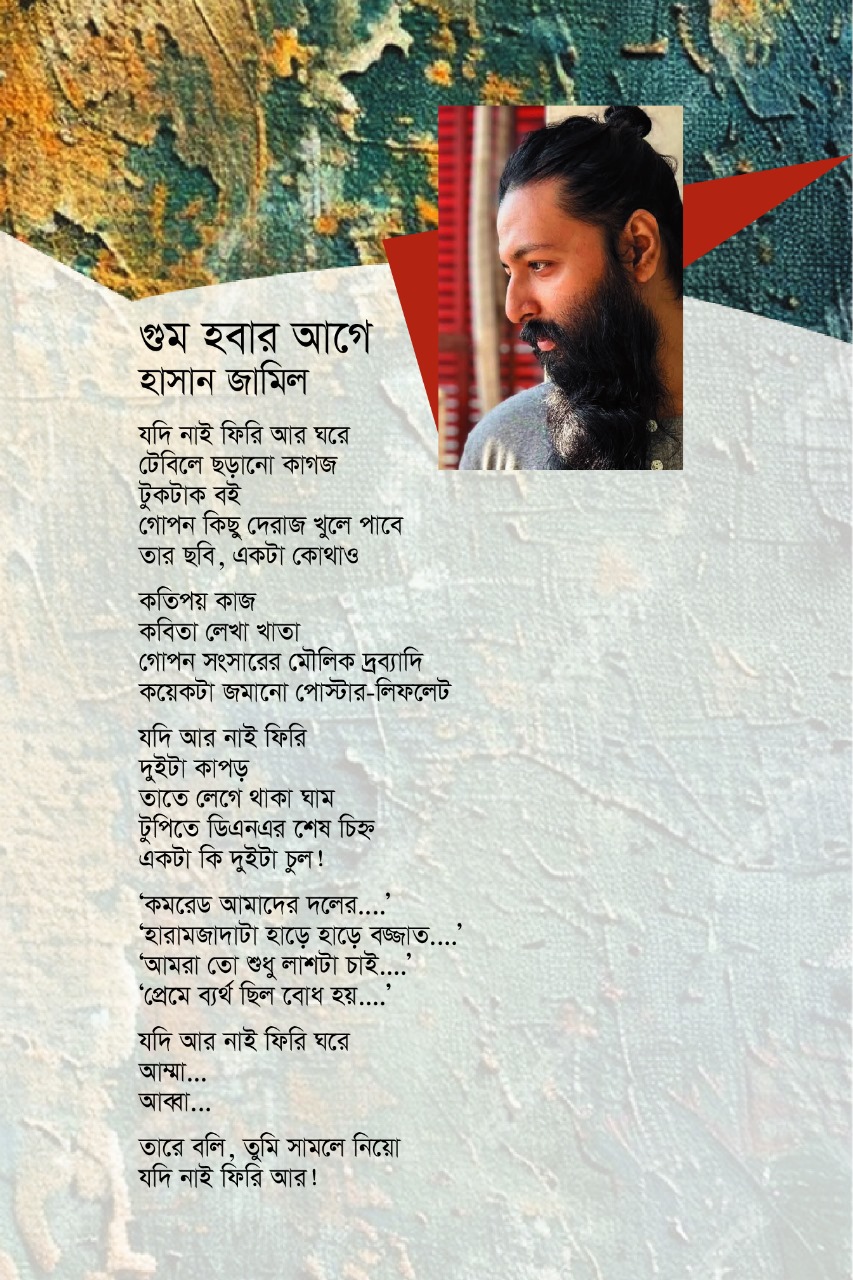 গুম হবার আগে
হাসান জামিল
যদি নাই ফিরি আর ঘরে
টেবিলে ছড়ানো কাগজ
টুকটাক বই
গোপন কিছু দেরাজ খুলে পাবে
তার ছবি, একটা কোথাও
কতিপয় কাজ
কবিতা লেখা খাতা
গোপন সংসারের মৌলিক দ্রব্যাদি
কয়েকটা জমানো পোস্টার-লিফলেট
যদি আর নাই ফিরি
দুইটা কাপড়
তাতে লেগে থাকা ঘাম
টুপিতে ডিএনএর শেষ চিহ্ন
একটা কি দুইটা চুল!
‘কমরেড আমাদের দলের....’
‘হারামজাদাটা হাড়ে হাড়ে বজ্জাত....’
‘আমরা তো শুধু লাশটা চাই....’
‘প্রেমে ব্যর্থ ছিল বোধ হয়....’
যদি আর নাই ফিরি ঘরে
আম্মা...
আব্বা...
তারে বলি, তুমি সামলে নিয়ো
যদি নাই ফিরি আর!